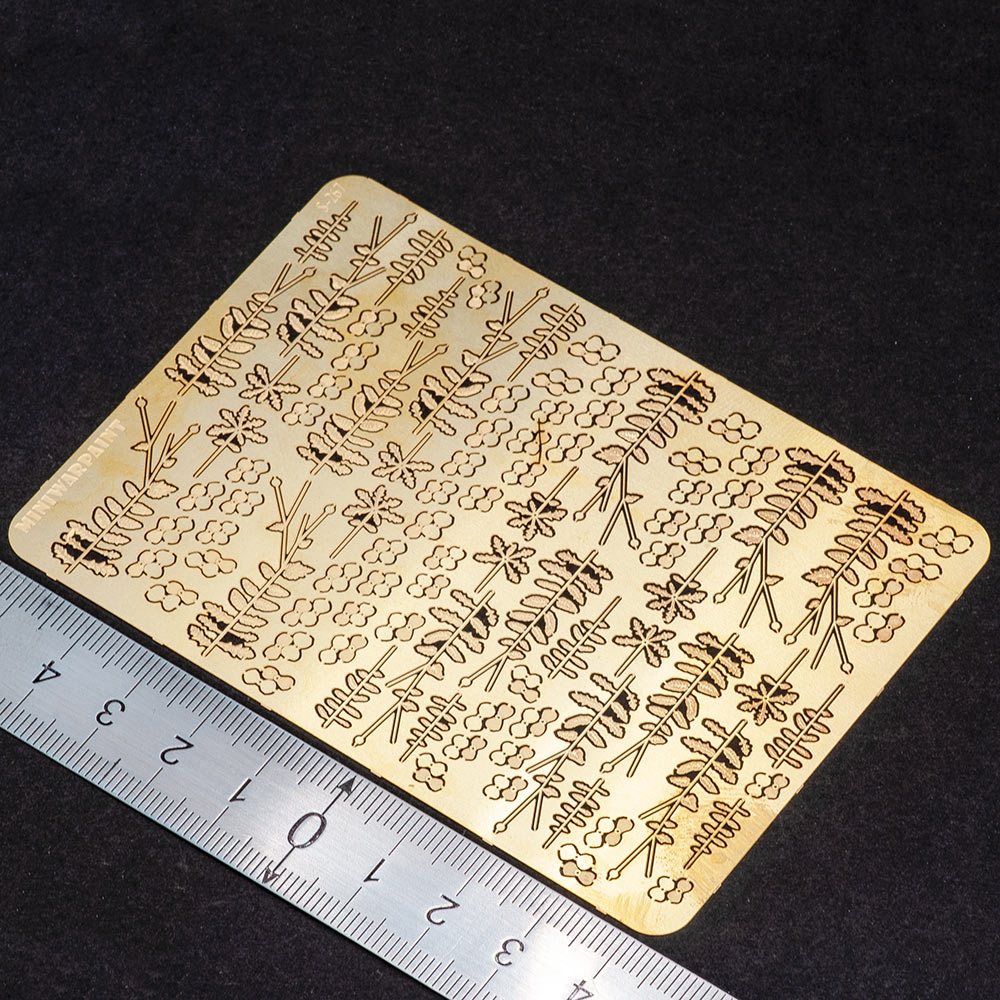 S-257
MINIWARPAINT
4 3 2 1 0 1 2 3 4